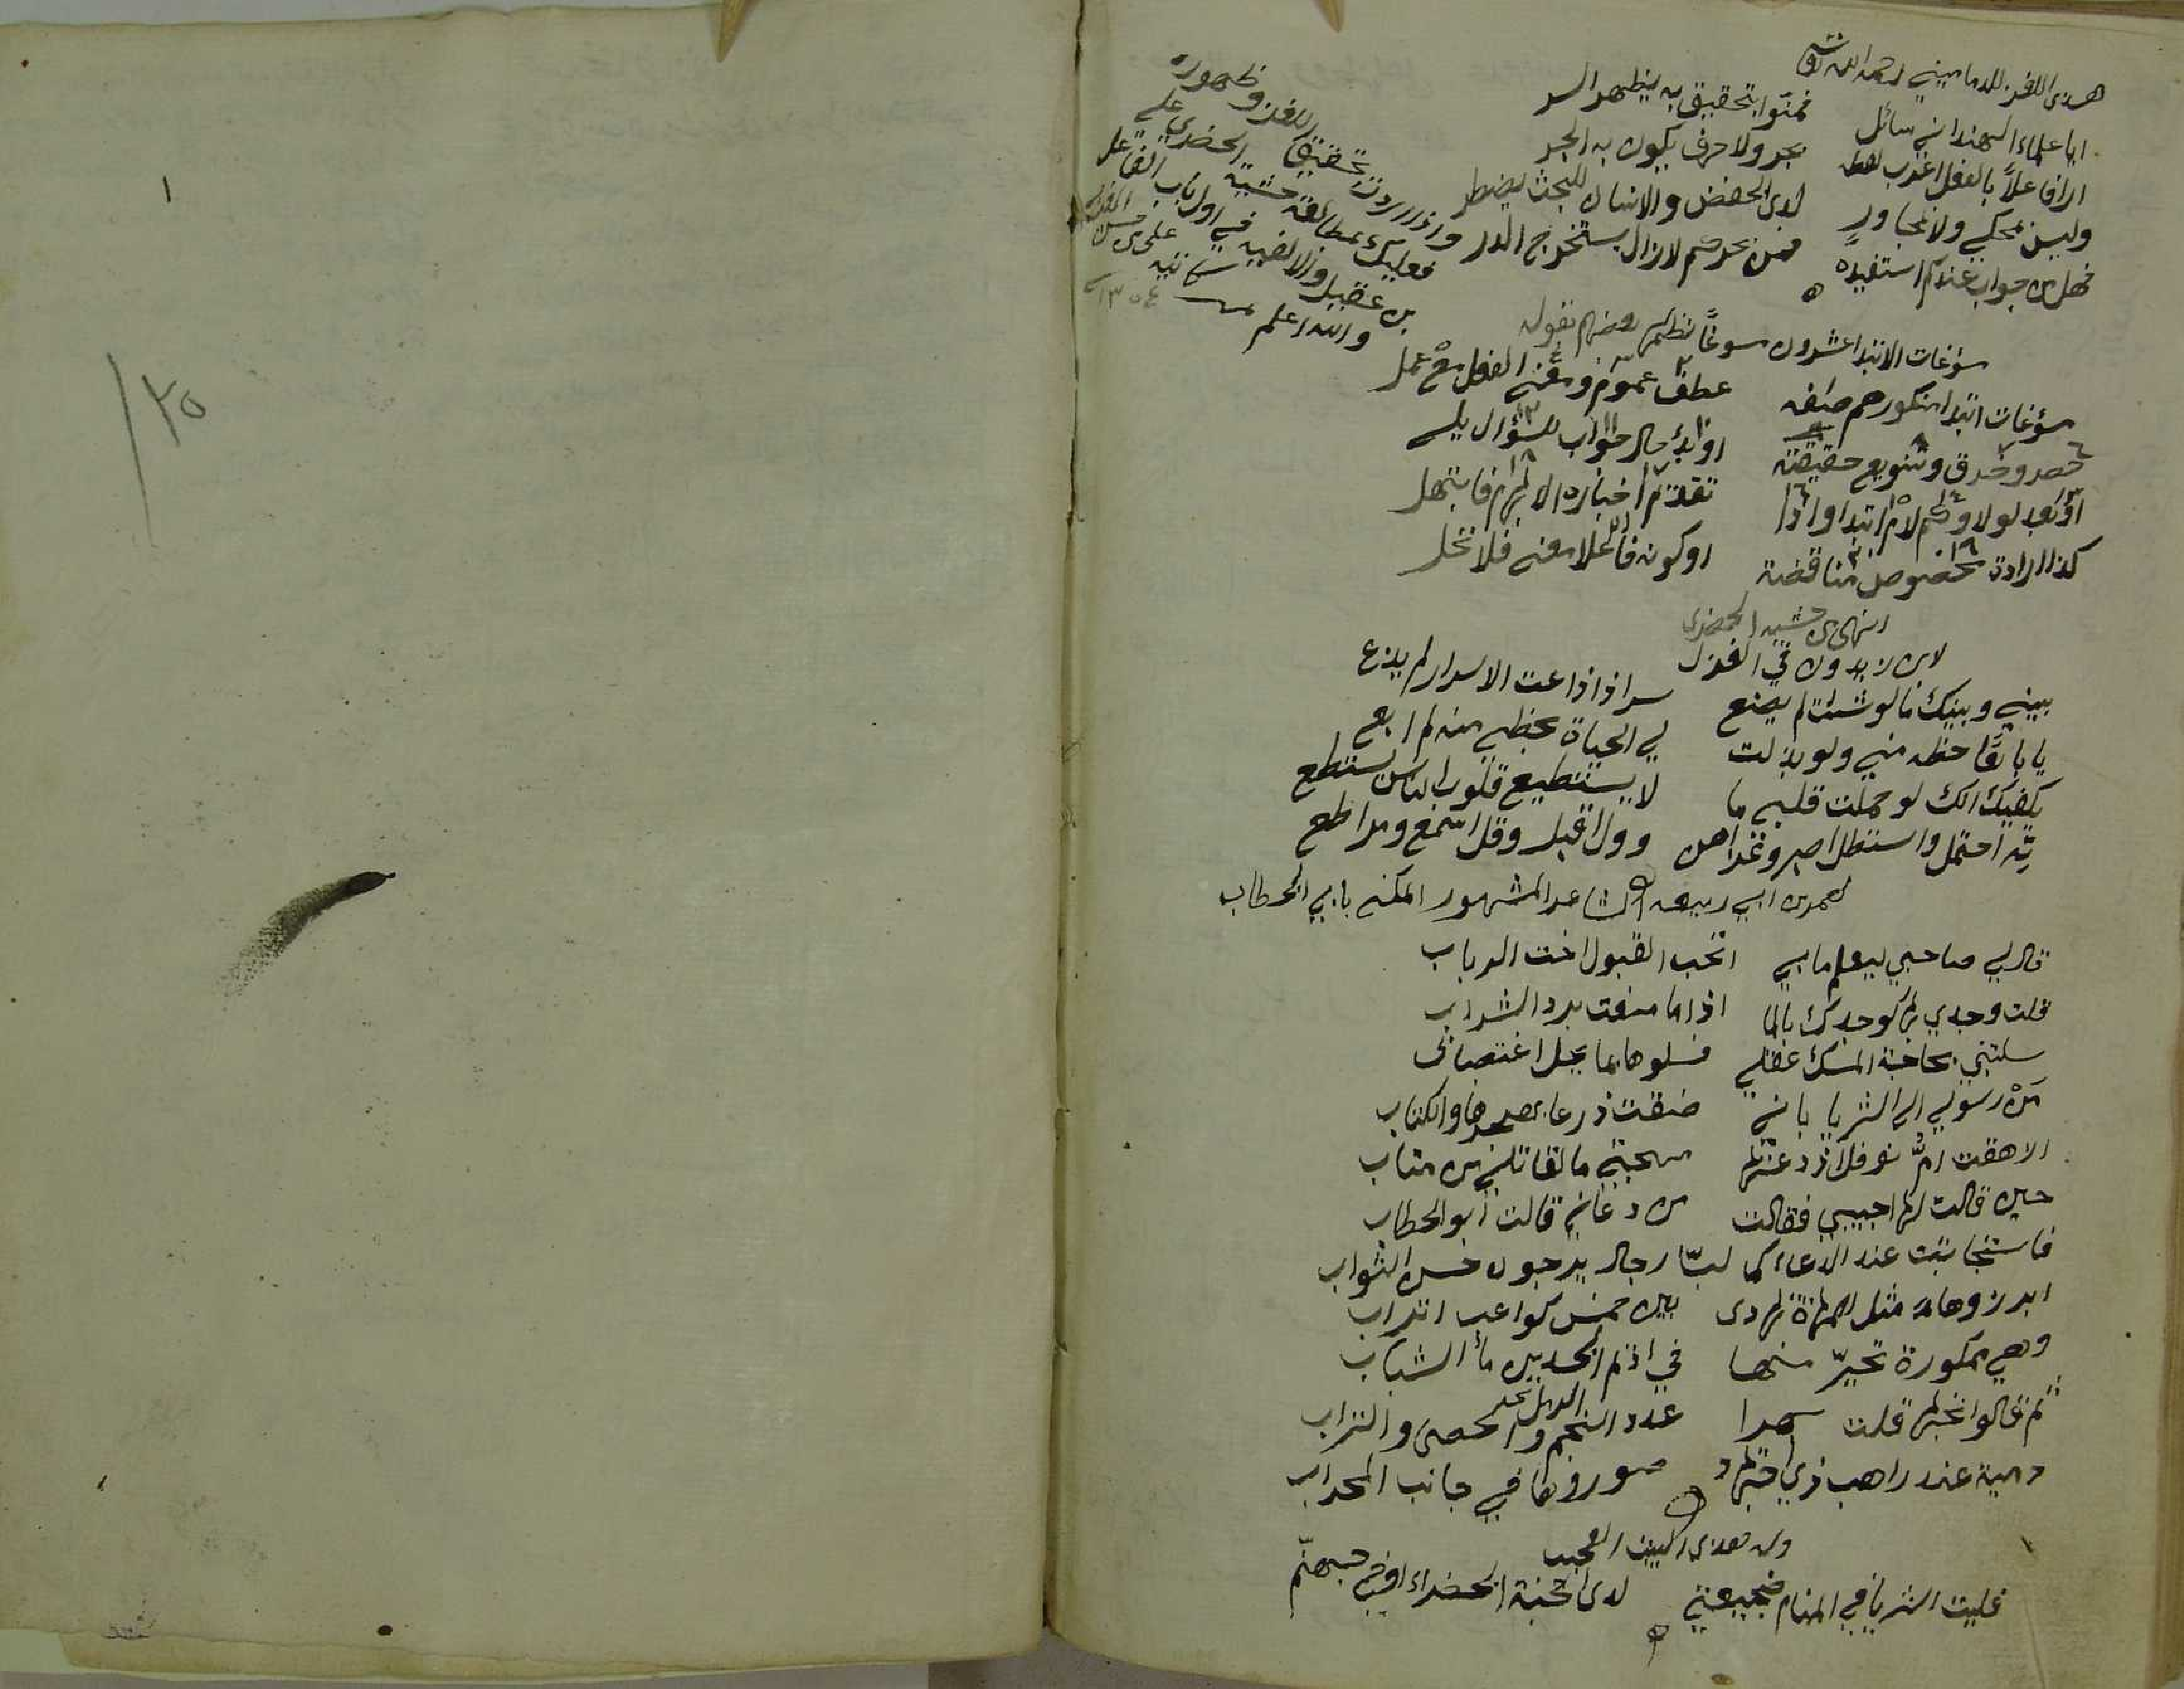 هذي اللغز للدماميني رحمه الله تعالى
ايا علماء الهند اني سائل فمنوا بتحقيق به يظهر السر
ارى فاعلاً بالفعل اعرب لفظه بجر ولا حرف يكون به الجر
وليس بمحكي ولا بمجاور لذي الخفض والانسان للبحث يضطر
فهل من جواب عندكم استفيده فمن بحركم لازال يستخرج الدر
واذا اردت تحقيق اللغز وظهوره
فعليك بمطالعة حشية الخضري على
بن عقيل والالفيه في اول باب الفاعل
والله اعلم كاتبه علي بن حسن
١٣٠٤
مسوغات الابتدا عشرون مسوغاً نظمها بعضهم بقوله
مسوغات ابتدا منكورهم صفه عطف عموم ومعنى الفعل مع عمل
حصر وخرق وتنويع حقيقته او بدء حال جواب للسؤال يلي
او بعد لولا وكم لام ابتدا واذا تقدم اخباره الابهام فابتهل
كذا ارادة بخصوص مناقضة او كونه فاعلا معنى فلا تحل
انتهى من حشية الخضري
لابن زيدون في الغزل
بيني وبينك ما لو شئت لم يضع سر اذا ذاعت الاسرار لم يذع
يا بائعاً حظه مني ولو بذلت لي الحياة بحظي منه لم ابع
يكفيك انك لو حملت قلبي ما لا يستطيع قلوب الناس يستطع
ته احتمل واستطل اصبر وعز اهن وول اقبل وقل اسمع ومر اطع
لعمر بن ابي ربيعه الشاعر المشهور المكنى بابي الخطاب
قال لي صاحبي ليعلم ما بي اتحب القتول اخت الرباب
قلت وجدي بها كوجدك بالما اذا ما منعت برد الشراب
سلبتني مجاجة المسك عقلي فسلوها بما يحل اغتصابى
من رسولي الى الثريا باني ضقت ذرعا بهجرها والكتاب
ازهقت ام نوفل اذ دعتها مهجتي ما لقاتلي من متاب
حين قالت لها اجيبي فقالت من دعاني قالت ابو الخطاب
فاستجابت عند الدعاء كما لبّا رجال يرجون حسن الثواب
ابرزوها مثل المهاة تهادى بين خمس كواعب اتراب
وهي ممكورة تحيّر منها في اديم الخدين ماء الشباب
ثم قالوا تحبها قلت بهرا عدد النجم والحصى والتراب
الرمل
دمية عند راهب ذي اجتهاد صوروها في جانب المحراب
وله هذي البيت العجيب
فليت الثريا في المنام ضجيعتي لدى الجنة الخضراء او في جهنّم
١
٢٥